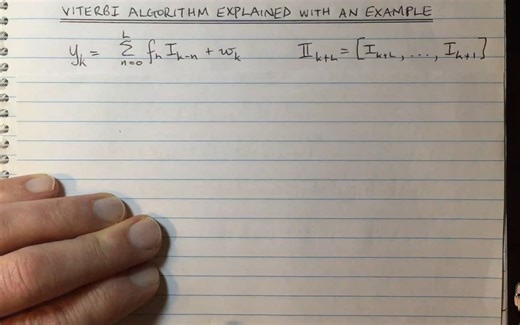 VITERBI ALGORITHM EXPLAINED WITH AN EXAMPLE
y_k = \sum_{n=0}^{L} f_n I_{k-n} + w_k    𝕀_{k+L} = [I_{k+L}, ..., I_{k+1}]